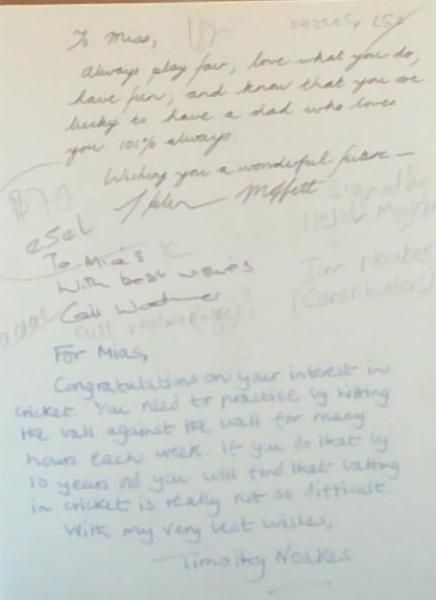 To Mias,
always play fair, love what you do,
have fun, and know that you are
lucky to have a dad who loves
you 101% always.
Wishing you a wonderful future —
Helen Moffett
To Mias
With best wishes
For Mias,
Congratulations on your interest in
cricket. You need to practise by hitting
the ball against the wall for many
hours each week. If you do that by
10 years old you will find that batting
in cricket is really not so difficult.
With my very best wishes,
Timothy Noakes
Signed by
Helen Moffett
Tim Noakes
(Contributors)